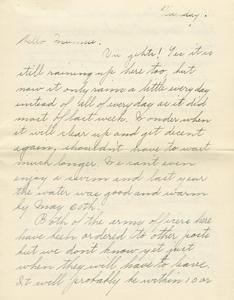 Monday.
Hello Minnie:
Vie gehts! Yes it is
still raining up here too, but
now it only rains a little everyday
instead of all of everyday as it did
most of last week. Wonder when
it will clear up and get decent
again, shouldn't have to wait
much longer. We can't even
enjoy a swim and last year
the water was good and warm
by May
Both of the army officers here
have been ordered to other posts
but we don't know yet just
when they will have to leave.
It will probably be within 10 or